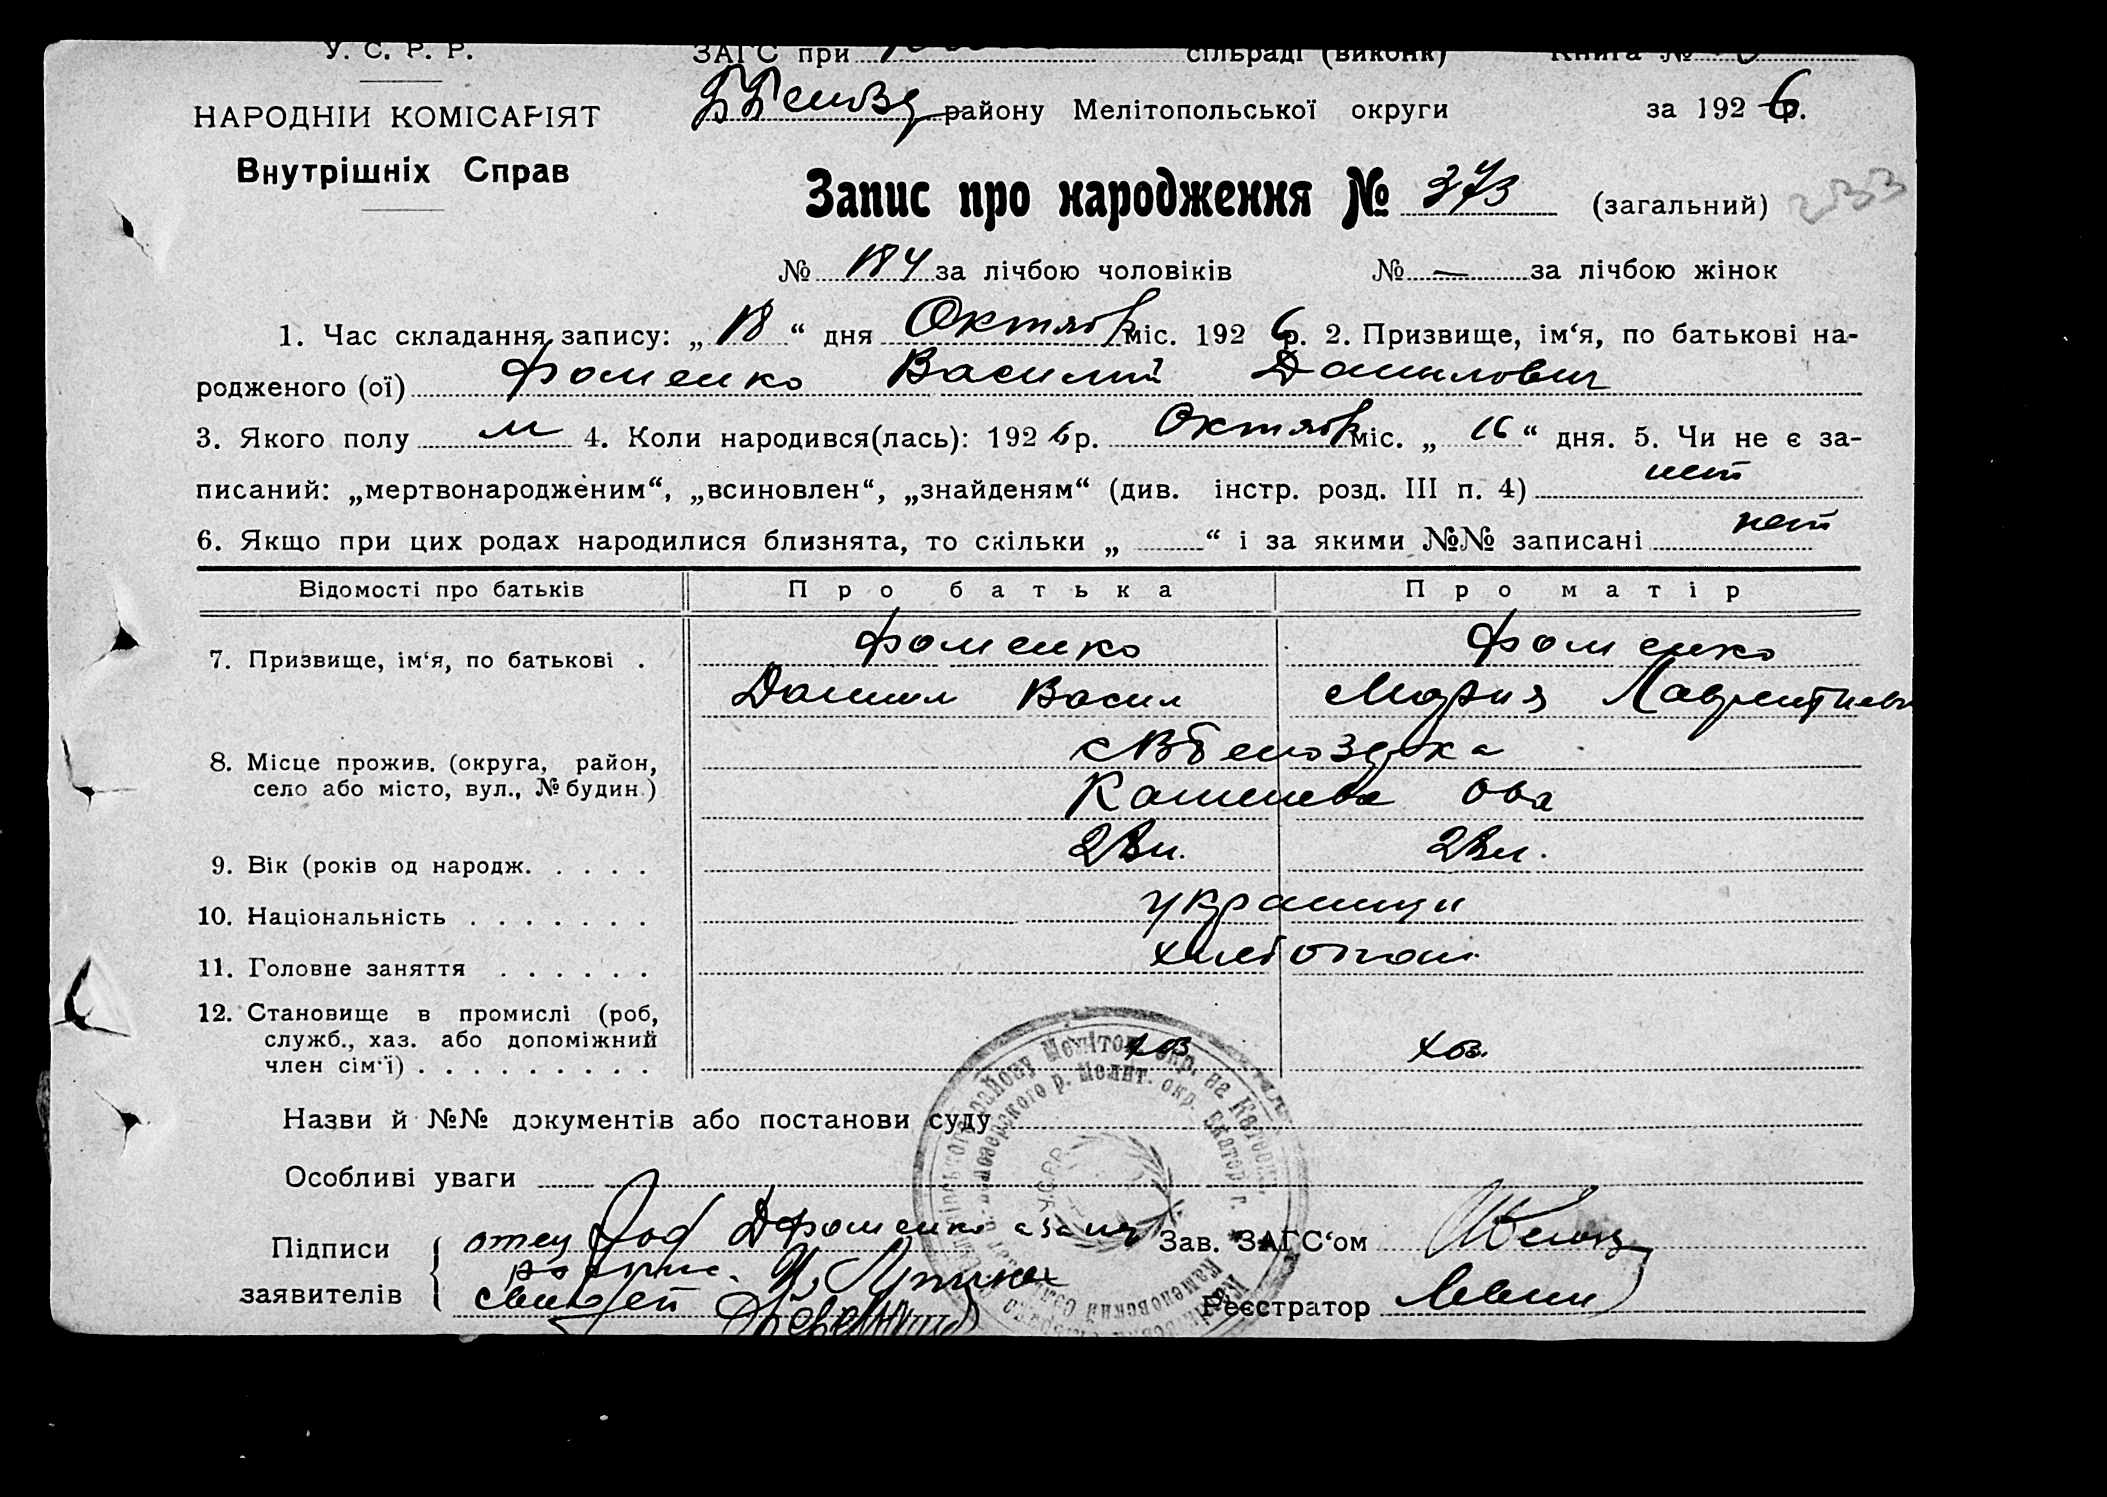 У. С. Р. Р. ЗАГС при сільраді (виконк) Книга №
НАРОДНІЙ КОМІСАРІЯТ району Мелітопольської округи за 1926 р.
Внутрішніх Справ
Запис про народження № 373 (загальний) 233
№ 184 за лічбою чоловіків № — за лічбою жінок
1. Час складання запису: „18“ дня Октябр міс. 1926 р. 2. Призвище, ім‘я, по батькові на-
родженого (ої) Фоменко Василий Данилович
3. Якого полу м 4. Коли народився(лась): 1926 р. Октябр міс. „16“ дня. 5. Чи не є за-
писаний: „мертвонародженим“, „всиновлен“, „знайденям“ (див. інстр. розд. III п. 4) нет
6. Якщо при цих родах народилися близнята, то скільки „ “ і за якими №№ записані нет
Відомості про батьків Про батька Про матір
7. Призвище, ім‘я, по батькові . Фоменко Фоменко
Данил Васил Мария Лаврентиевн
8. Місце прожив. (округа, район,
село або місто, вул., № будин.)
9. Вік (років од народж. . . . .
10. Національність . . . . . . . украинци
11. Головне заняття . . . . . . хлебопаш.
12. Становище в промислі (роб,
служб., хаз. або допоміжний
член сім‘ї) . . . . . . . . . хоз. хоз.
Назви й №№ документів або постанови суду
Особливі уваги
Підписи отец Фоменко Зав. ЗАГС‘ом
заявителів Реєстратор
У.С.Р.Р.